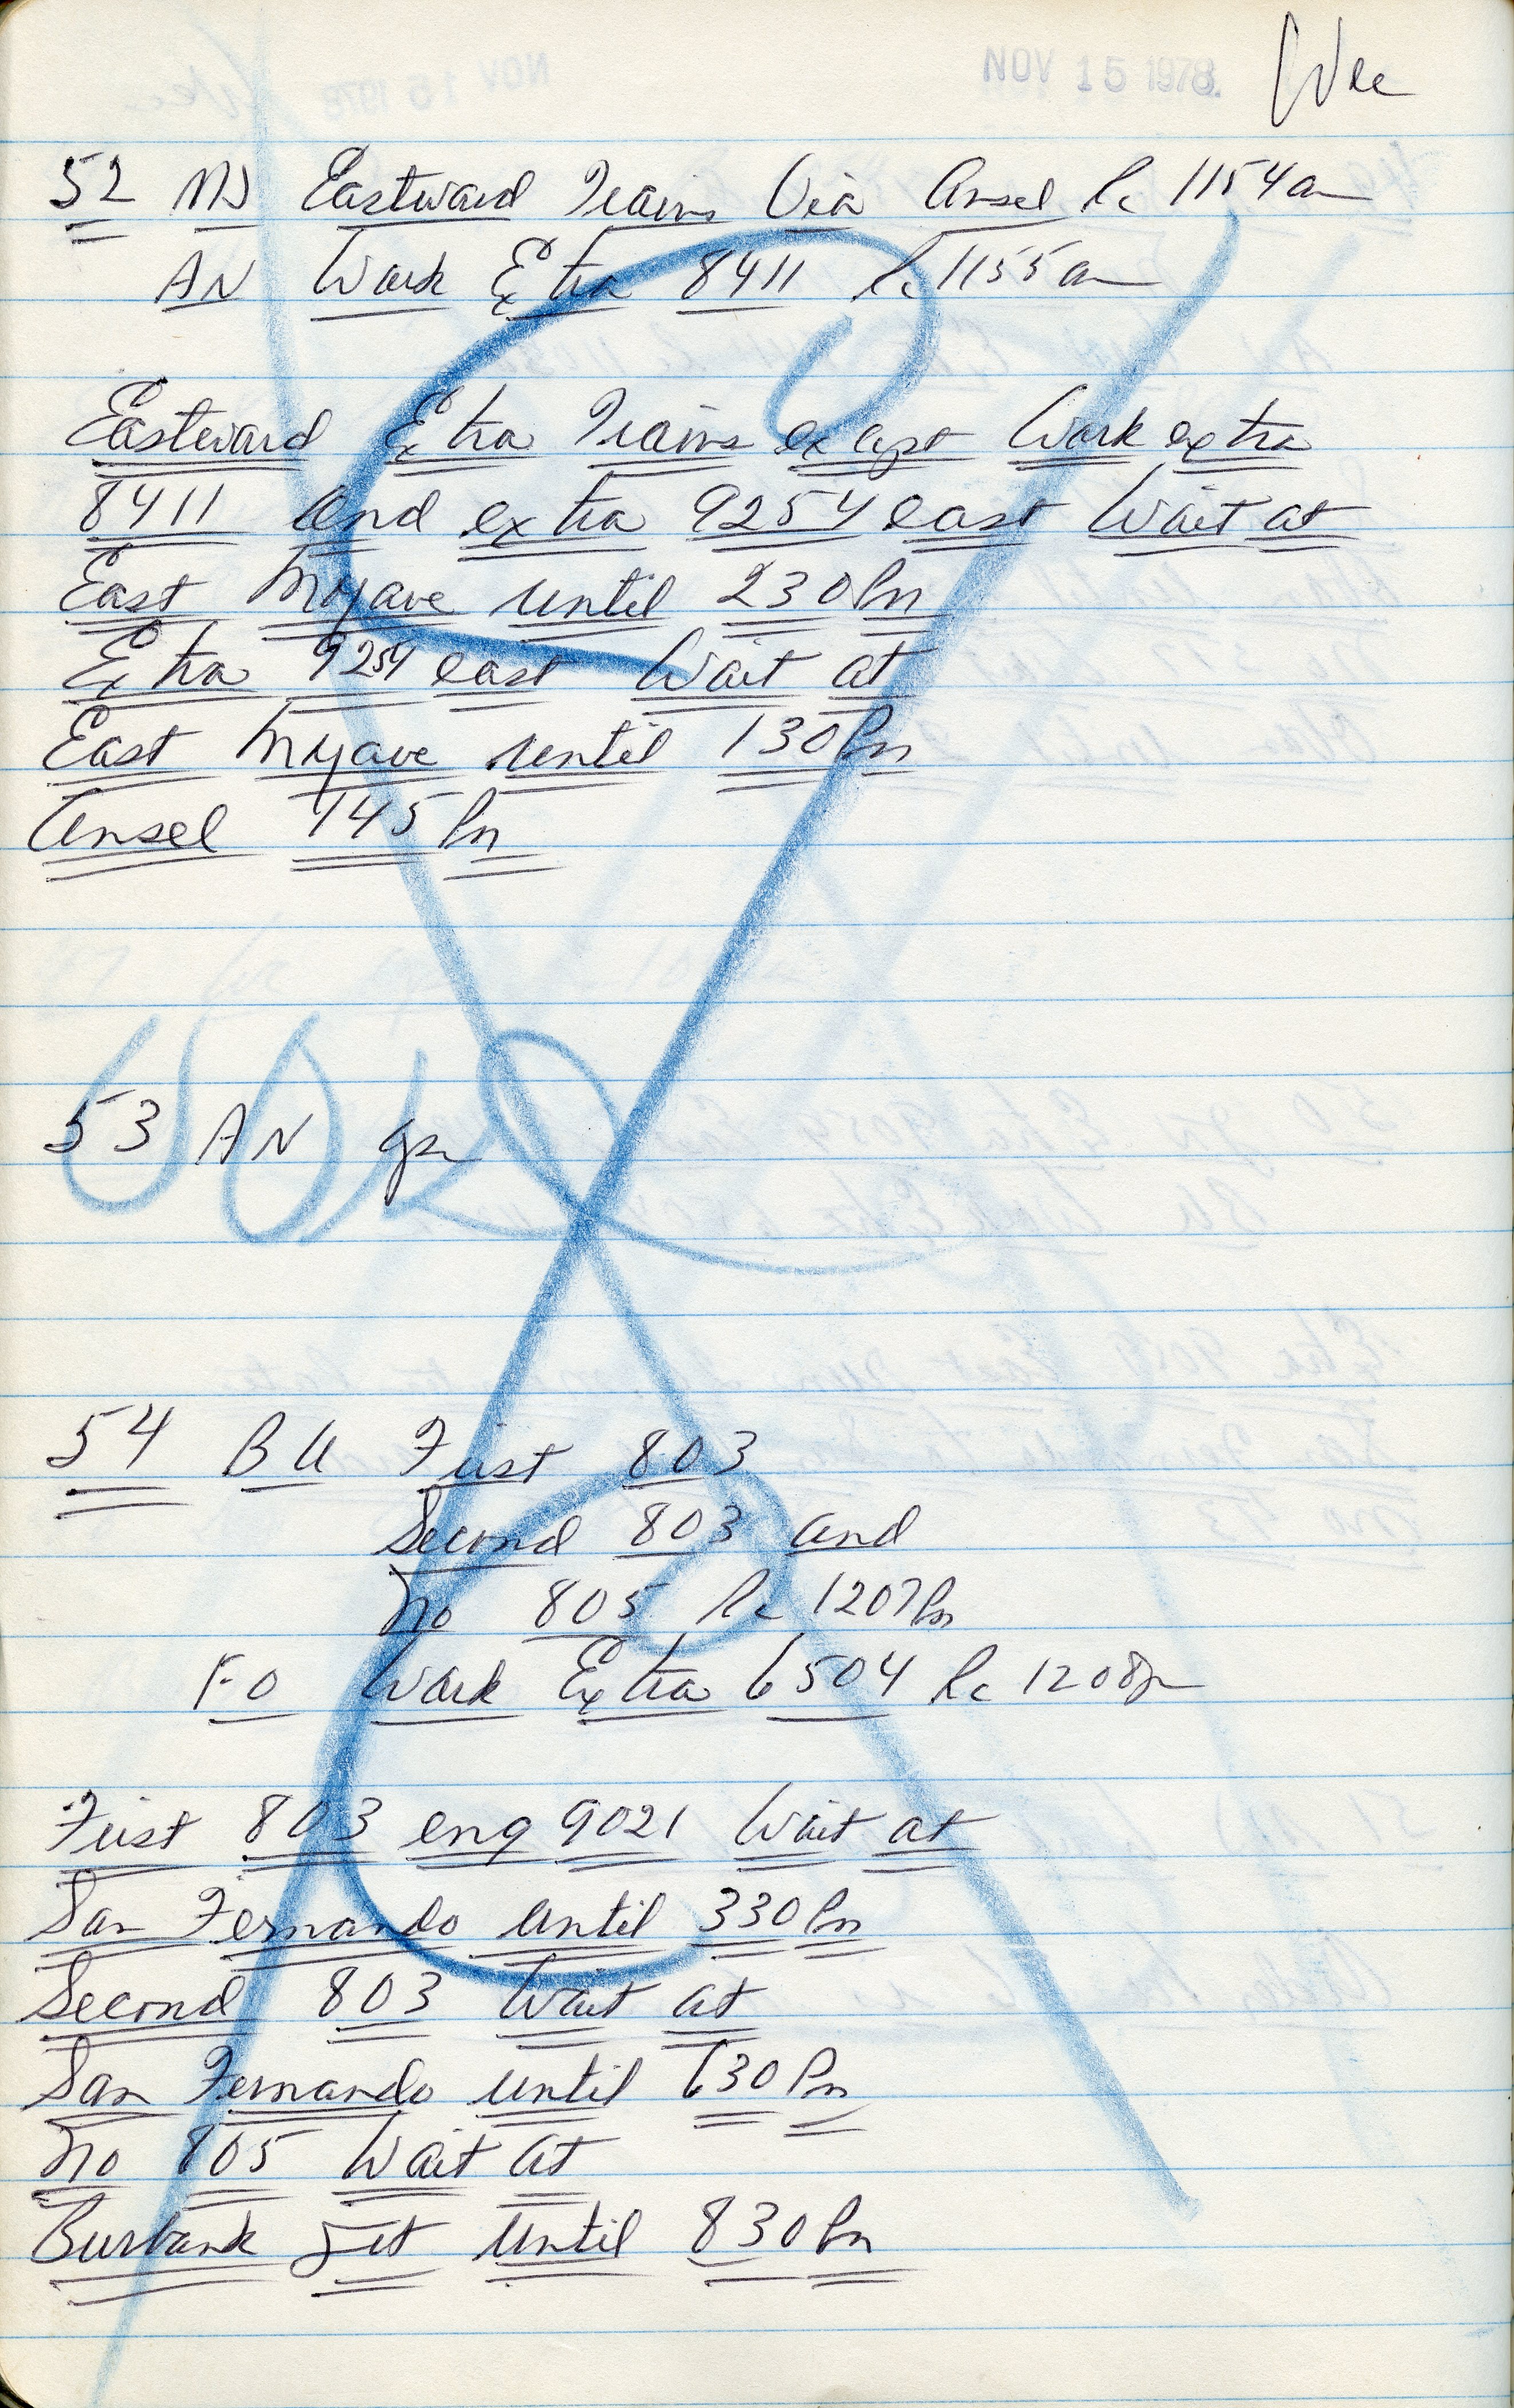 NOV 15 1978.
52 MJ Eastward Trains Via Ansel Rc 1154am
AN Work Extra 8411 Rc 1155am
Eastward Extra Trains except Work extra
8411 and extra 9254 east Wait at
East Mojave until 230Pm
Extra 9254 east Wait at
East Mojave until 130Pm
Ansel 145Pm
53 AN
54 BU First 803
Second 803 and
No 805 Rc 1207Pm
FO Work Extra 6504 Rc 1208pm
First 803 eng 9021 Wait at
San Fernando until 330Pm
Second 803 Wait at
San Fernando until 630Pm
No 805 Wait at
Burbank Jct until 830Pm